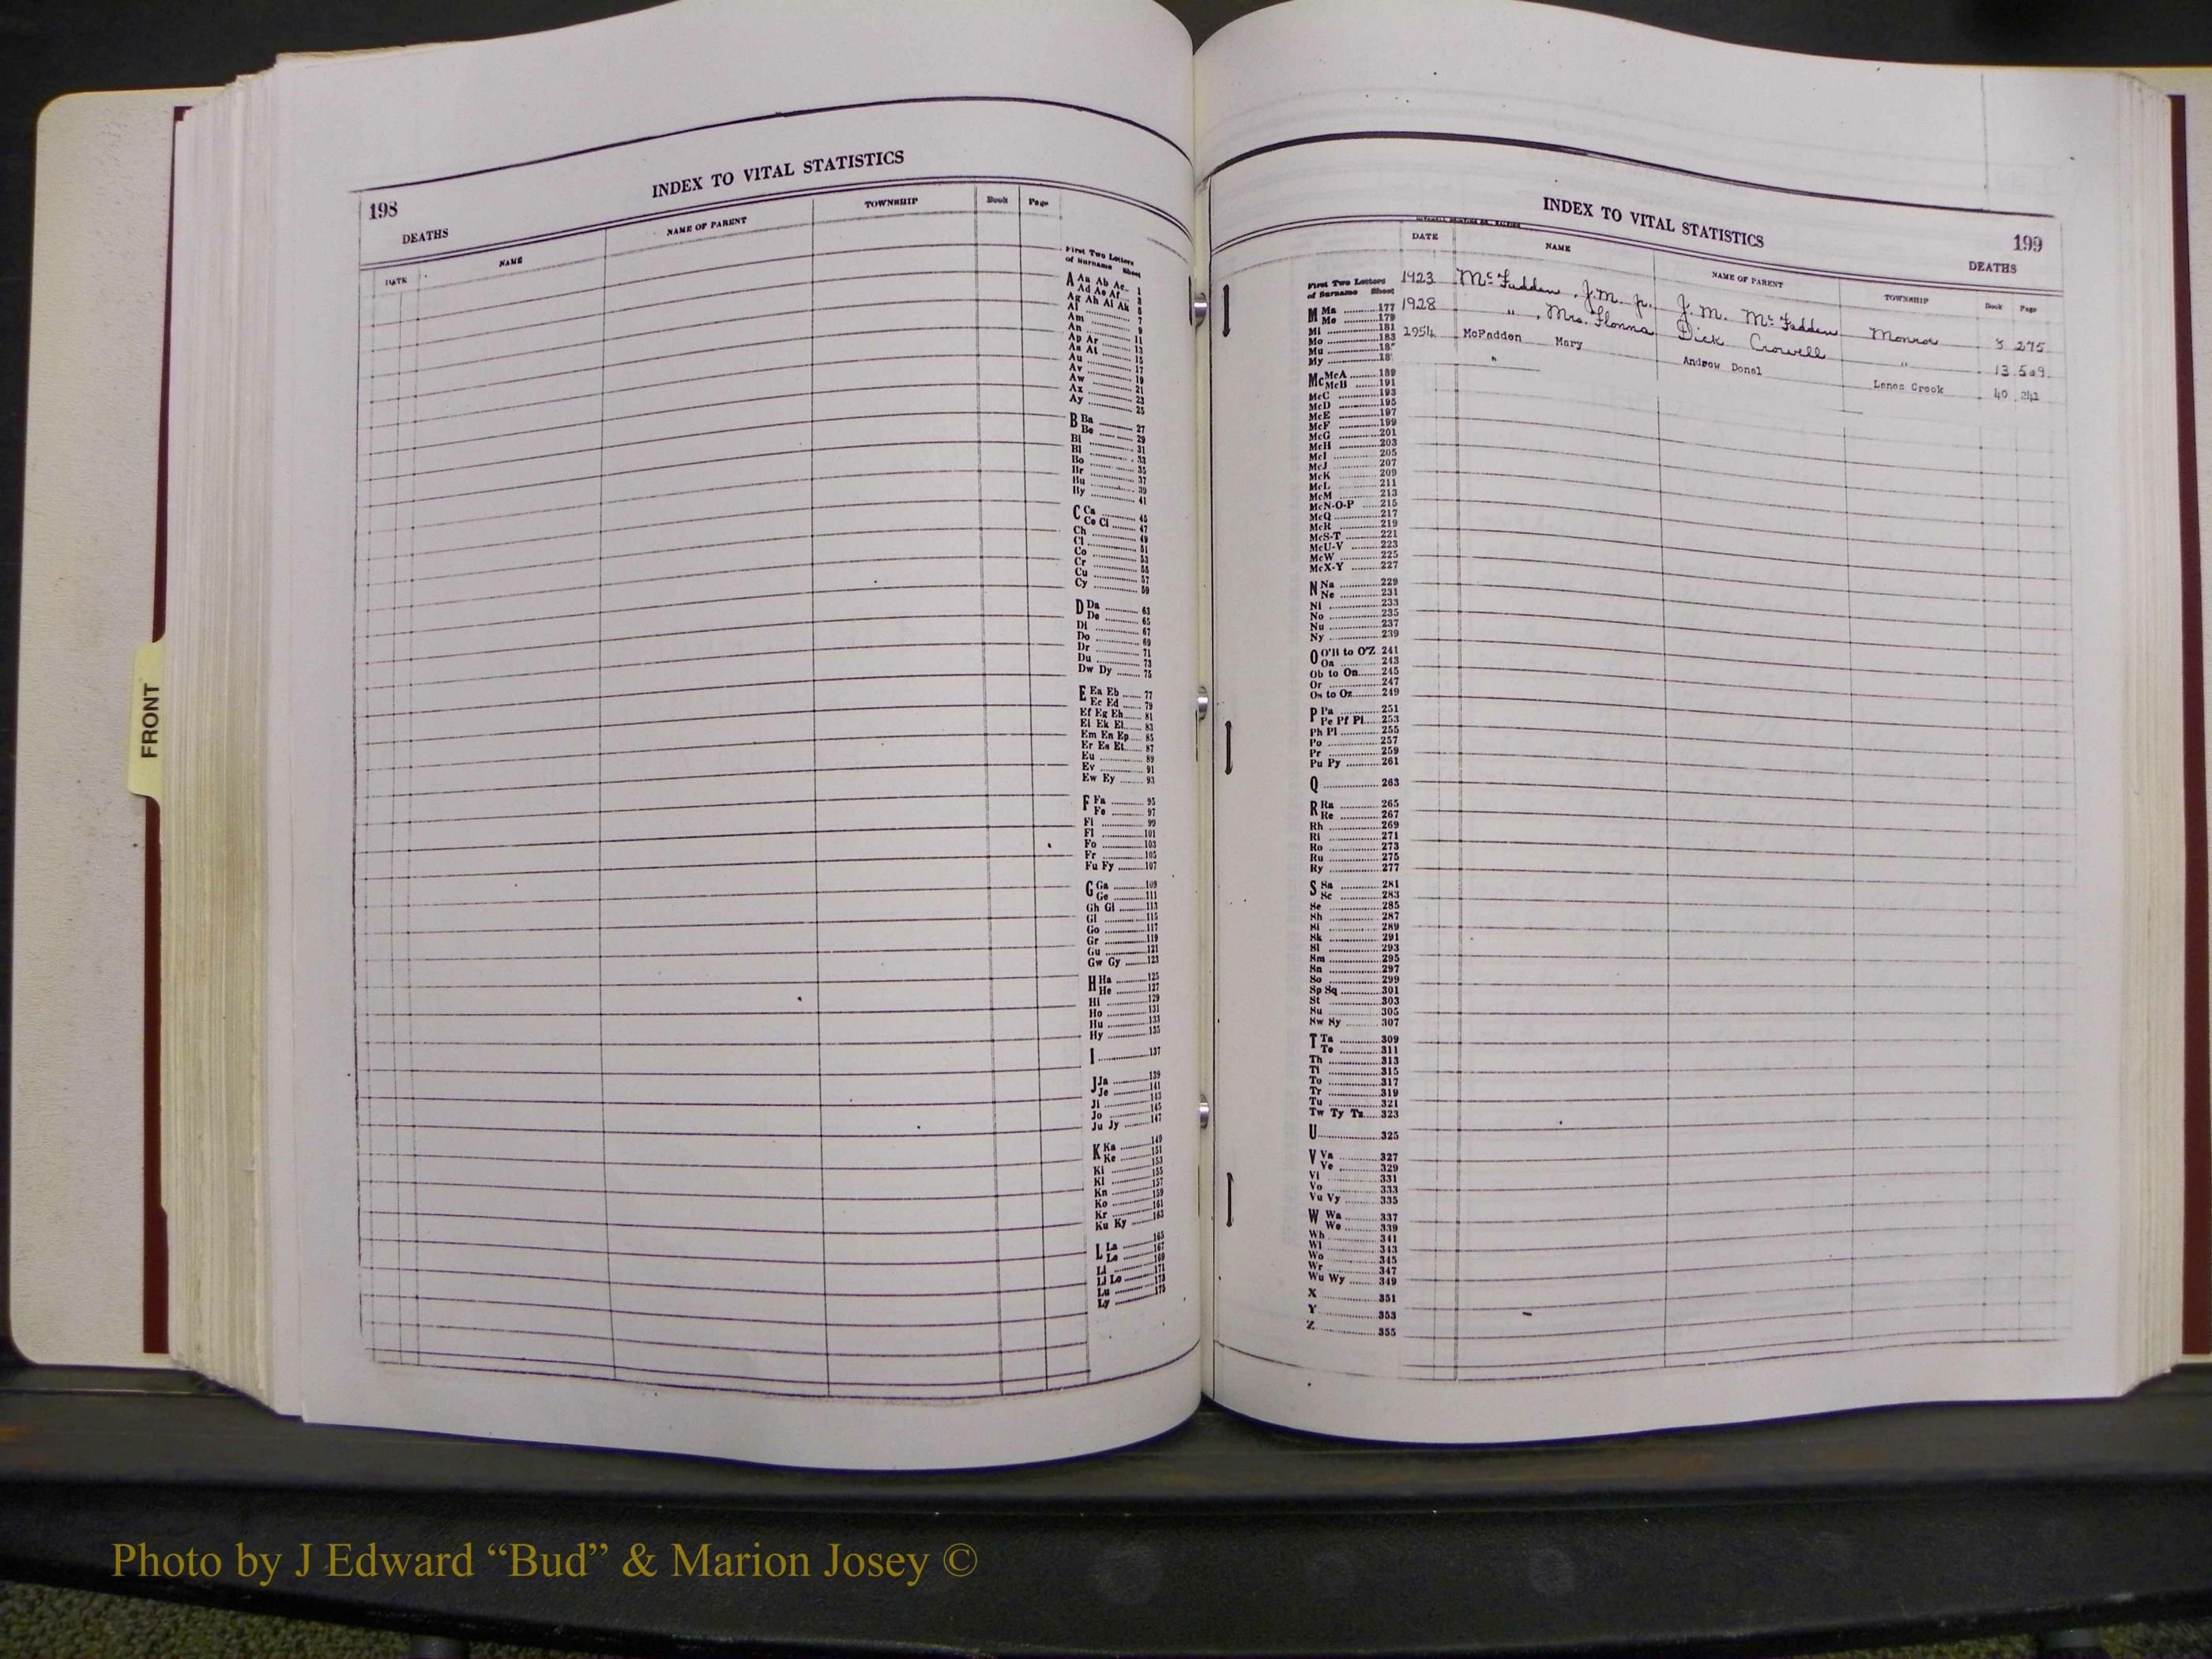 INDEX TO VITAL STATISTICS
198
DEATHS
DATE NAME NAME OF PARENT TOWNSHIP Book Page
First Two Letters
of Surname Sheet
A Aa Ab Ac 1
Ad Ae Af 3
Ag Ah Ai Ak 5
Al 7
Am 9
An 11
Ap Ar 13
As At 15
Au 17
Av 19
Aw 21
Ax 23
Ay 25
B Ba 27
Be 29
Bi 31
Bl 33
Bo 35
Br 37
Bu 39
By 41
C Ca 45
Ce Ci 47
Ch 49
Cl 51
Co 53
Cr 55
Cu 57
Cy 59
D Da 63
De 65
Di 67
Do 69
Dr 71
Du 73
Dw Dy 75
E Ea Eb 77
Ec Ed 79
Ef Eg Eh 81
Ei Ek El 83
Em En Ep 85
Er Es Et 87
Eu 89
Ev 91
Ew Ey 93
F Fa 95
Fe 97
Fi 99
Fl 101
Fo 103
Fr 105
Fu Fy 107
G Ga 109
Ge 111
Gh Gi 113
Gl 115
Go 117
Gr 119
Gu 121
Gw Gy 123
H Ha 125
He 127
Hi 129
Ho 131
Hu 133
Hy 135
I 137
J Ja 139
Je 141
Ji 143
Jo 145
Ju Jy 147
K Ka 149
Ke 151
Ki 153
Kl 155
Kn 157
Ko 159
Kr 161
Ku Ky 163
L La 165
Le 167
Li 169
Ll Lo 171
Lu 173
Ly 175
INDEX TO VITAL STATISTICS
199
DEATHS
DATE NAME NAME OF PARENT TOWNSHIP Book Page
1923 McFadden, J.M. Jr. J. M. McFadden Monroe 8 275
1928 " , Mrs. Flonna Dick Crowell " 13 509
1954 McFadden Mary Andrew Donal Lanes Creek 40 241
"
First Two Letters
of Surname Sheet
M Ma 177
Me 179
Mi 181
Mo 183
Mu 18
My 18
Mc McA 189
McB 191
McC 193
McD 195
McE 197
McF 199
McG 201
McH 203
McI 205
McJ 207
McK 209
McL 211
McM 213
McN-O-P 215
McQ 217
McR 219
McS-T 221
McU-V 223
McW 225
McX-Y 227
N Na 229
Ne 231
Ni 233
No 235
Nu 237
Ny 239
O O'B to O'Z 241
Oa 243
Ob to On 245
Or 247
Os to Oz 249
P Pa 251
Pe Pf Pi 253
Ph Pl 255
Po 257
Pr 259
Pu Py 261
Q 263
R Ra 265
Re 267
Rh 269
Ri 271
Ro 273
Ru 275
Ry 277
S Sa 281
Sc 283
Se 285
Sh 287
Si 289
Sk 291
Sl 293
Sm 295
Sn 297
So 299
Sp Sq 301
St 303
Su 305
Sw Sy 307
T Ta 309
Te 311
Th 313
Ti 315
To 317
Tr 319
Tu 321
Tw Ty Tz 323
U 325
V Va 327
Ve 329
Vi 331
Vo 333
Vu Vy 335
W Wa 337
We 339
Wh 341
Wi 343
Wo 345
Wr 347
Wu Wy 349
X 351
Y 353
Z 355
FRONT
Photo by J Edward “Bud” & Marion Josey ©